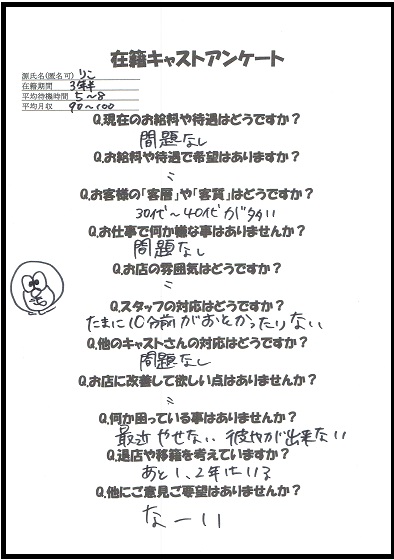 在籍キャストアンケート
源氏名(匿名可) りこ
在籍期間 3年半
平均待機時間 5〜8
平均月収 90〜100
Q.現在のお給料や待遇はどうですか?
問題なし
Q.お給料や待遇で希望はありますか?
〃
Q.お客様の「客層」や「客質」はどうですか?
30代〜40代が多い
Q.お仕事で何か嫌な事はありませんか?
問題なし
Q.お店の雰囲気はどうですか?
〃
Q.スタッフの対応はどうですか?
たまに10分前がおとかったりない
Q.他のキャストさんの対応はどうですか?
問題なし
Q.お店に改善して欲しい点はありませんか?
〃
Q.何か困っている事はありませんか?
最近やせない 彼氏が出来ない
Q.退店や移籍を考えていますか?
あと1、2年はいる
Q.他にご意見ご要望はありませんか?
なーい